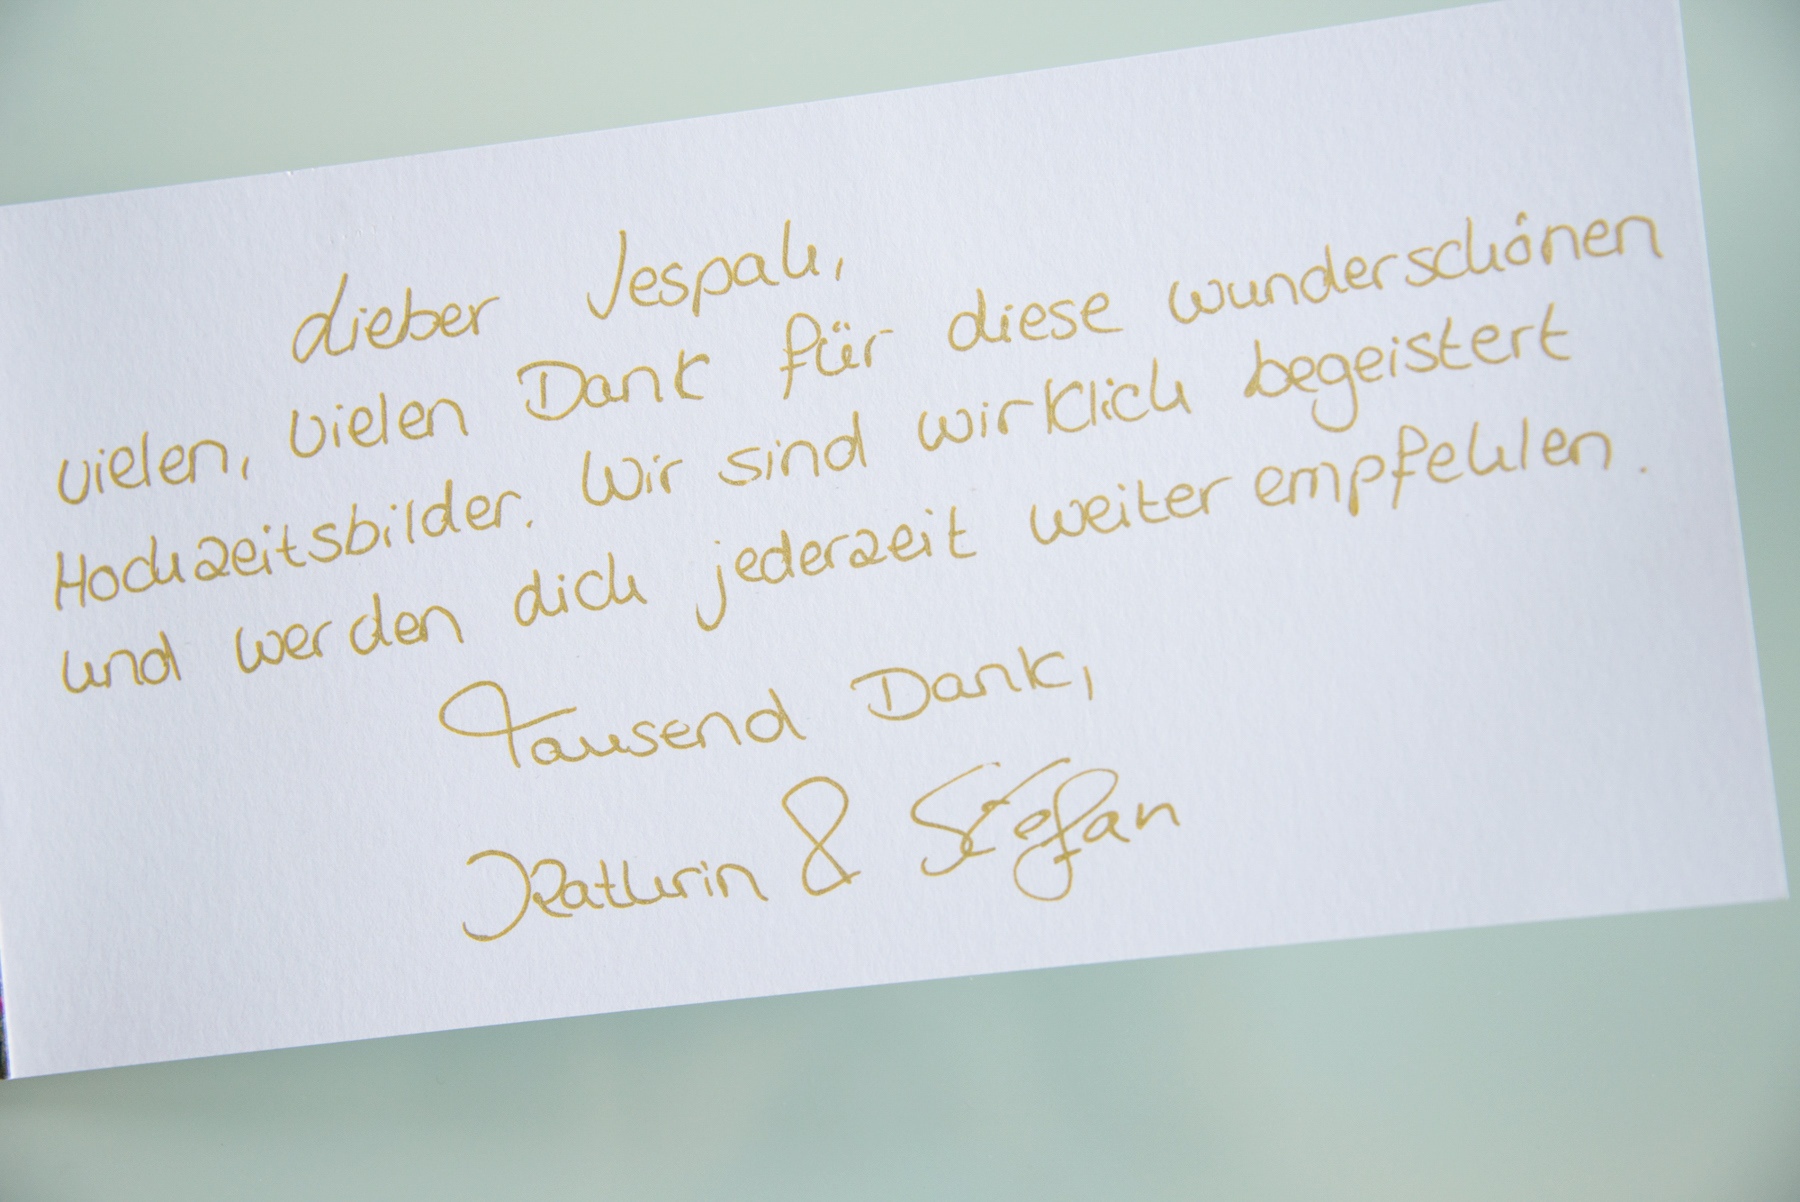 Lieber Jespah,
vielen, vielen Dank für diese wunderschönen
Hochzeitsbilder. Wir sind wirklich begeistert
und werden dich jederzeit weiter empfehlen.
Tausend Dank,
Kathrin & Stefan